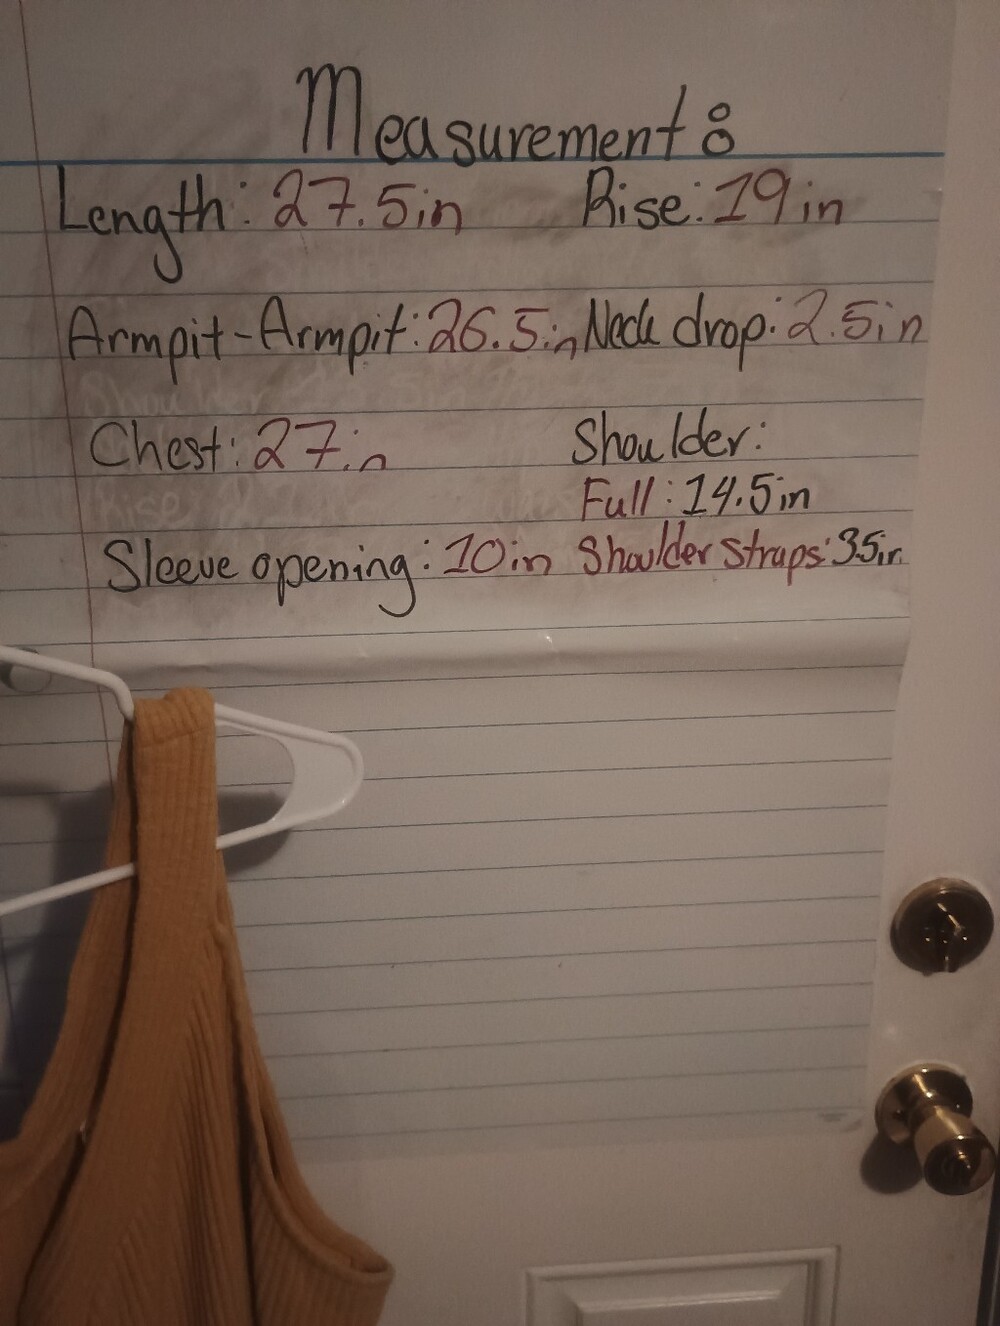 Measurement:
Length: 27.5in Rise: 19in
Armpit-Armpit: 26.5in Neck drop: 2.5in
Chest: 27in Shoulder:
Full: 14.5in
Sleeve opening: 10in Shoulder Straps: 35in